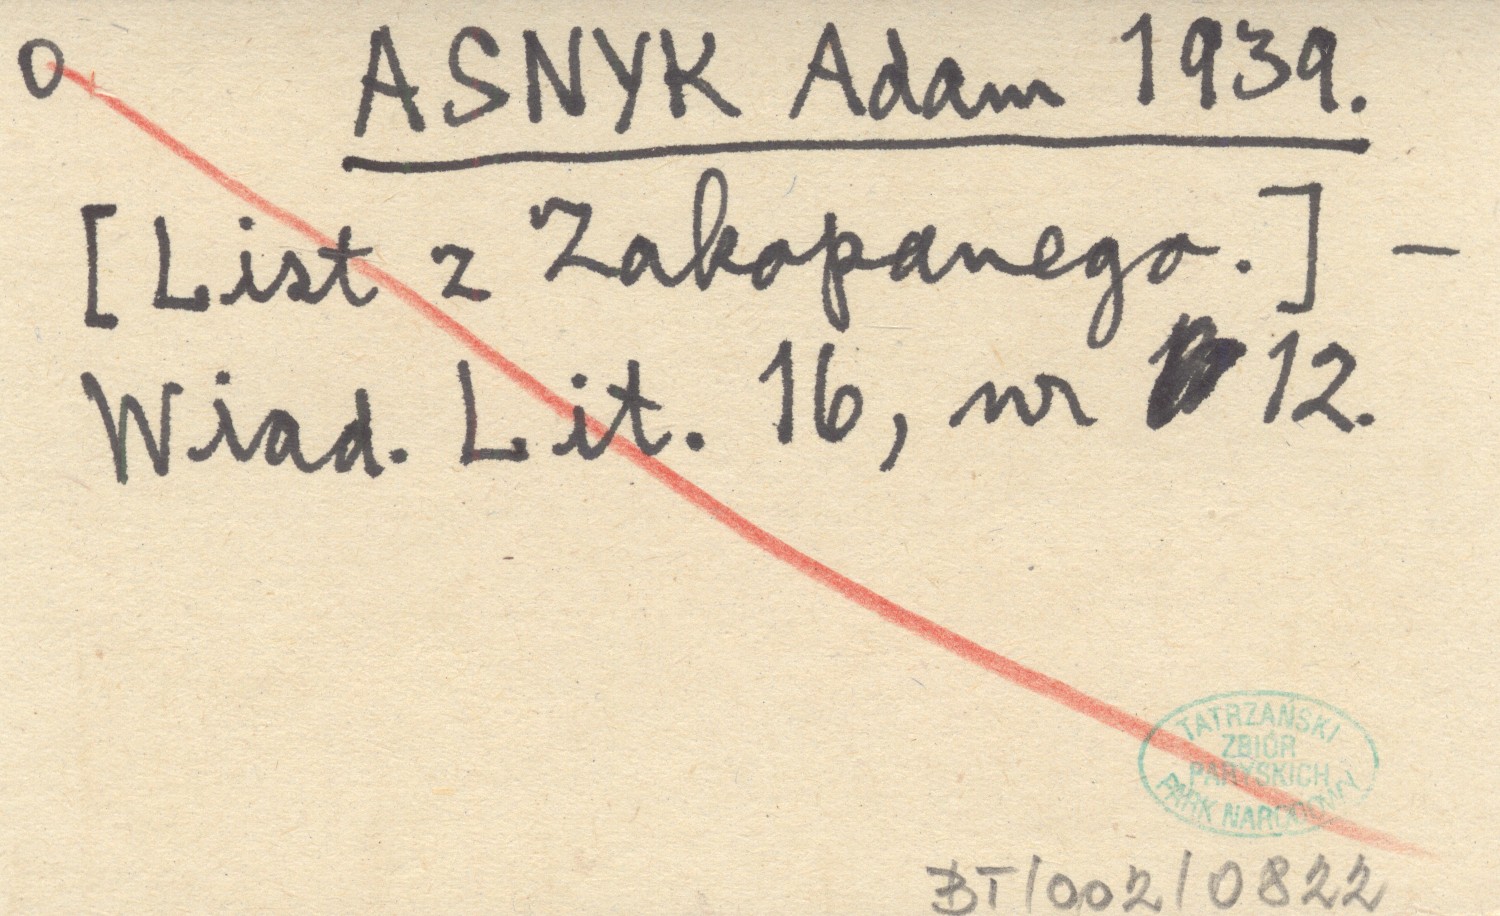 O ASNYK Adam 1939.
[List z Zakopanego.] –
Wiad. Lit. 16, nr 12.
TATRZAŃSKI
ZBIÓR
PARYSKICH
PARK NARODOWY
BT/002/0822